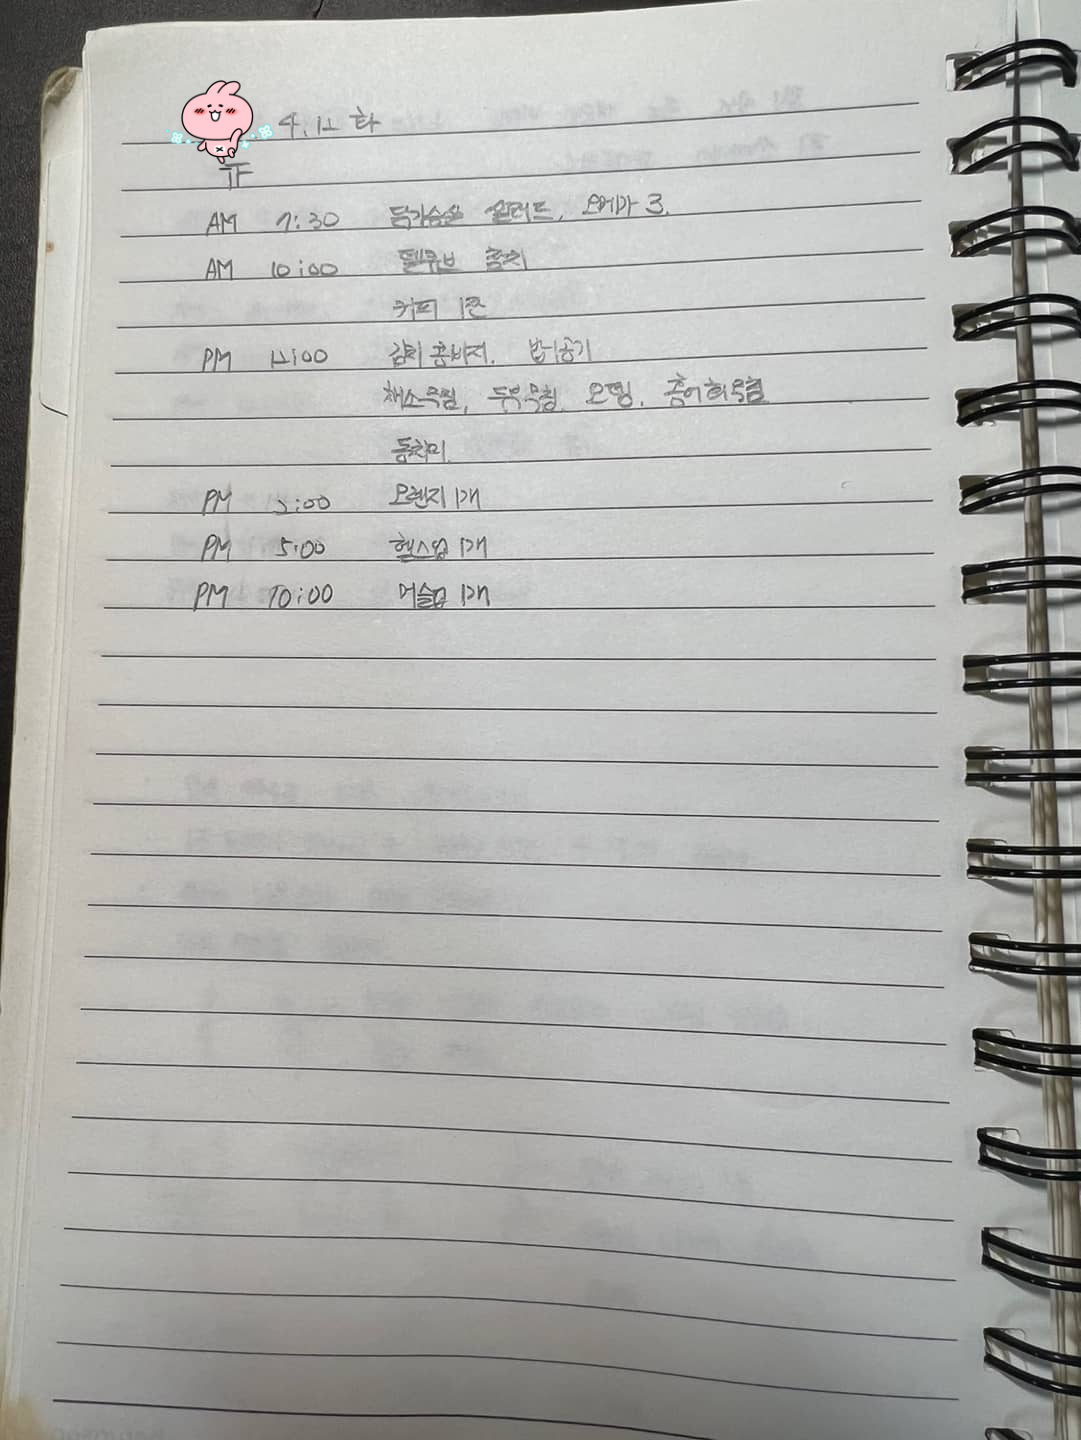 4. 12 화
AM 7:30 닭가슴살 샐러드, 오메가 3.
AM 10:00 참치
커피 1잔
PM 12:00 김치 콩비지. 밥 1공기
채소무침, 두부무침. 오뎅. 홍어회무침
동치미.
PM 3:00 오렌지 1개
PM 5:00 헬스밀 1개
PM 10:00 머슬밀 1개